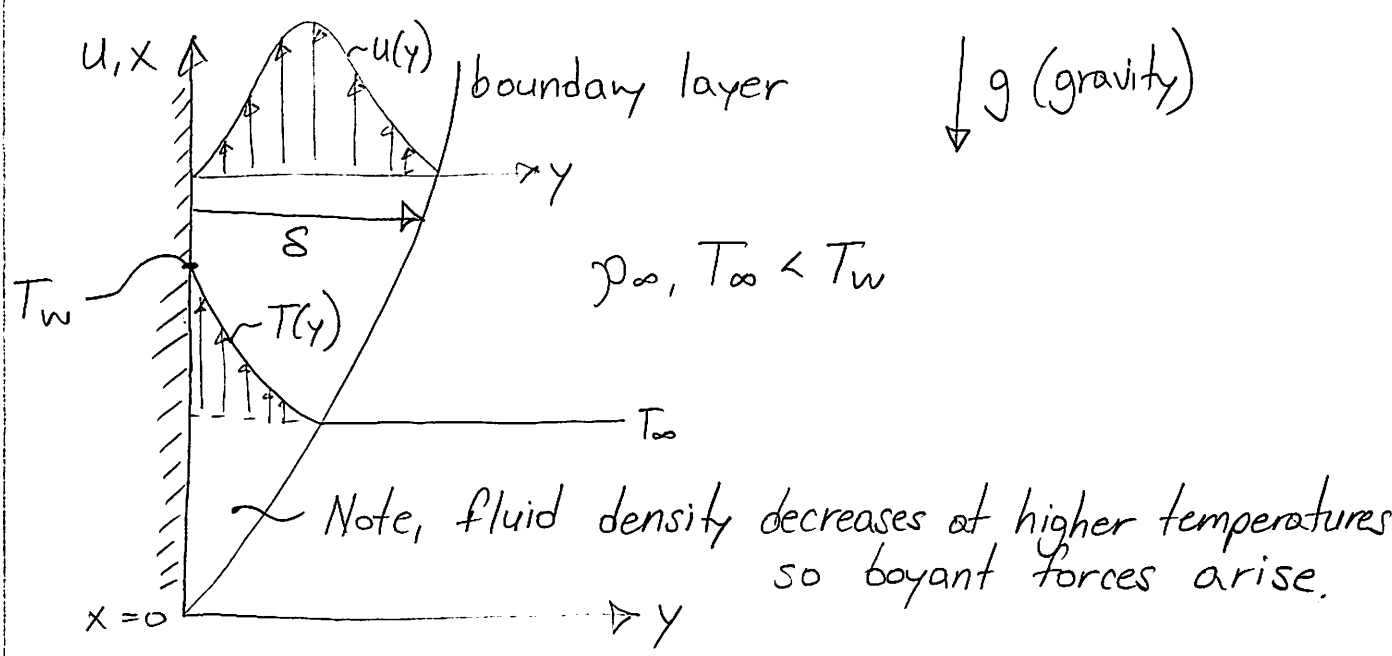 u, x
~u(y)
boundary layer
g (gravity)
y
δ
T_w
~T(y)
ρ∞, T∞ < T_w
T∞
~ Note, fluid density decreases at higher temperatures
so boyant forces arise.
x=0
y